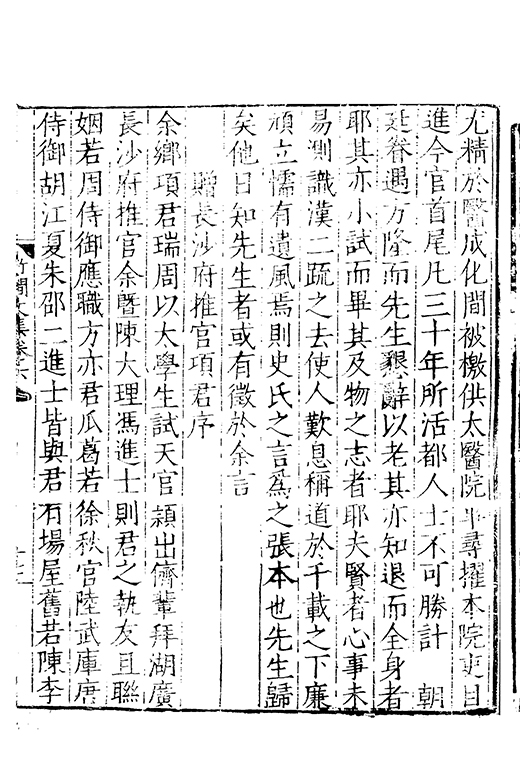 尤精於醫成化間被檄供太醫院平尋擢本院吏目
進今官首尾凡三十年所活都人士不可勝計　朝
廷眷遇方隆而先生懇辭以老其亦知退而全身者
耶其亦小試而畢其及物之志者耶夫賢者心事未
易測識漢二疏之去使人歎息稱道於千載之下廉
頑立懦有遺風焉則史氏之言爲之張本也先生歸
矣他日知先生者或有徵於余言
贈長沙府推官項君序
余鄉項君瑞周以大學生試天官頴出儕輩拜湖廣
長沙府推官余暨陳大理馮進士則君之執友且聯
姻若周侍御應職方亦君瓜葛若徐秋官陸武庫唐
侍御胡江夏朱邵二進士皆與君有場屋舊若陳李
文集卷之